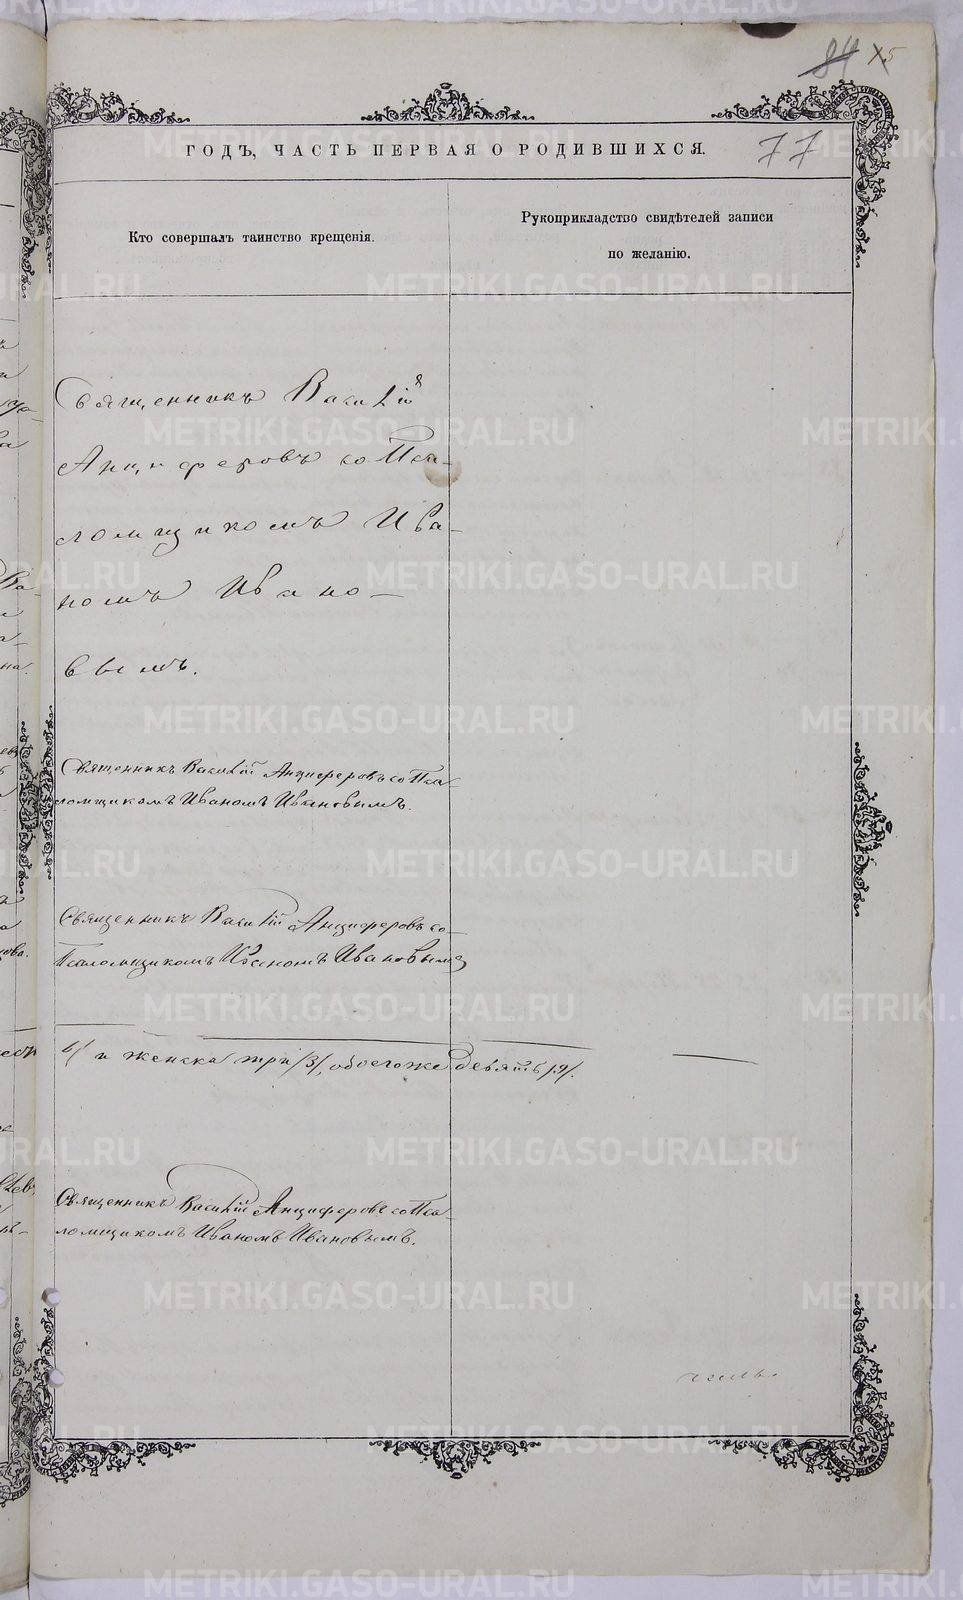 84 X5
77
ГОДЪ, ЧАСТЬ ПЕРВАЯ О РОДИВШИХСЯ.
Кто совершалъ таинство крещенія.
Рукоприкладство свидѣтелей записи
по желанію.
Священникъ Василій
Анциферовъ со Пса-
ломщикомъ Ива-
номъ Ивано-
вымъ.
Священникъ Василій Анциферовъ со Пса-
ломщикомъ Иваномъ Ивановымъ.
Священникъ Василій Анциферовъ со-
Псаломщикомъ Иваномъ Ивановымъ
6/ и женска три /3/, обоегоже девять /9/.
Священникъ Василій Анциферовъ со Пса-
ломщикомъ Иваномъ Ивановымъ.
METRIKI.GASO-URAL.RU